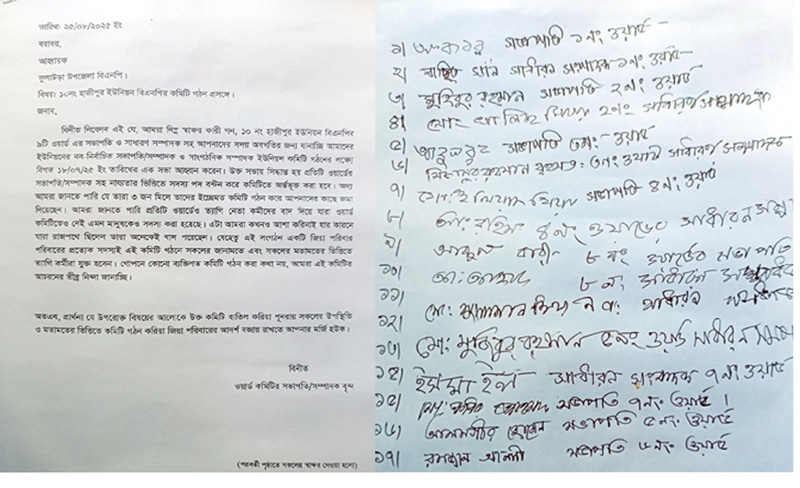 তারিখ: ২৫/০৮/২০২৫ ইং
বরাবর,
আহ্বায়ক
কুলাউড়া উপজেলা বিএনপি।
বিষয়: ১০নং হাজীপুর ইউনিয়ন বিএনপির কমিটি গঠন প্রসঙ্গে।
জনাব,
বিনীত নিবেদন এই যে, আমরা নিম্ন স্বাক্ষর কারী গন, ১০ নং হাজীপুর ইউনিয়ন বিএনপির
৯টি ওয়ার্ড এর সভাপতি ও সাধারণ সম্পাদক সহ আপনাদের সদয় অবগতির জন্য যানাচ্ছি আমাদের
ইউনিয়নের নব-নির্বাচিত সভাপতি/সম্পাদক ও সাংগঠনিক সম্পাদক ইউনিয়ন কমিটি গঠনের লক্ষ্যে
বিগত ১৮/০৭/২৫ ইং তারিখের এক সভা আহ্বান করেন। উক্ত সভায় সিদ্ধান্ত হয় প্রতিটি ওয়ার্ডের
সভাপতি/সম্পাদক সহ নায্যতার ভিত্তিতে সদস্য পদ বন্টন করে কমিটিতে অর্ন্তভূক্ত করা হবে। অদ্য
আমরা জানতে পারি যে তারা ৩ জন মিলে তাদের ইচ্ছেমত কমিটি গঠন করে আপনাদের কাছে জমা
দিয়েছেন। আমরা জানতে পারি প্রতিটি ওয়ার্ডেও ত্যাগি নেতা কর্মীদের বাদ দিয়ে যারা ওয়ার্ড
কমিটিতেও নেই এমন মানুষকেও সদস্য করা হয়েছে। এটা আমরা কখনও আশা করিনাই যার কারনে
যারা রাজপথে ছিলেন তারা অনেকেই বাদ পড়েছেন। যেহেতু এই সংগঠন একটি জিয়া পরিবার
পরিবারের প্রত্যেক সদস্যই এই কমিটি গঠনে সকলের জানামতে এবং সকলের মতামতের ভিত্তিতে
ত্যাগি কর্মীরা যুক্ত হবেন। গোপনে কোনো ব্যক্তিগত কমিটি গঠন করা কথা নয়, আমরা এই কমিটির
আচরনের তীব্র নিন্দা জানাচ্ছি।
অতএব, প্রার্থনা যে উপরোক্ত বিষয়ের আলোকে উক্ত কমিটি বাতিল করিয়া পূনরায় সকলের উপস্থিতি
ও মতামতের ভিত্তিতে কমিটি গঠন করিয়া জিয়া পরিবারের আদর্শ বজায় রাখতে আপনার মর্জি হউক।
বিনীত
ওয়ার্ড কমিটির সভাপতি/সম্পাদক বৃন্দ
(পরবর্তী পৃষ্ঠাতে সকলের স্বাক্ষর দেওয়া হলো)
১। সভাপতি ১নং ওয়ার্ড
২। সাধারন সম্পাদক ১নং ওয়ার্ড
৩। মুহিবুর রহমান সভাপতি ২নং ওয়ার্ড
৪। মোঃ মিয়া ২নং
৫। সভাপতি ৩নং ওয়ার্ড
৬। মিজানুর রহমান ৩নং ওয়ার্ড সাধারন সম্পাদক
৭। মোঃ মিয়া সভাপতি ৪নং ওয়ার্ড
৮। মোঃ রহিম ৪নং ওয়ার্ডের সাধারন
৯। আব্দুল বারী ৮ নং ওয়ার্ডের সভাপতি
১০। ৮ নং সাধারন সম্পাদক
১১। মোঃ সাধারন
১২।
১৩। মোঃ মুজিবুর রহমান ৫নং ওয়ার্ড সাধারন
১৪। ইসমাইল সাধারন সংবাদক ৭নং ওয়ার্ড
১৫। সভাপতি ৭নং ওয়ার্ড।
১৬। আলমগীর হোসেন সভাপতি ৫নং ওয়ার্ড
১৭। রমজান আলী সভাপতি ৬নং ওয়ার্ড